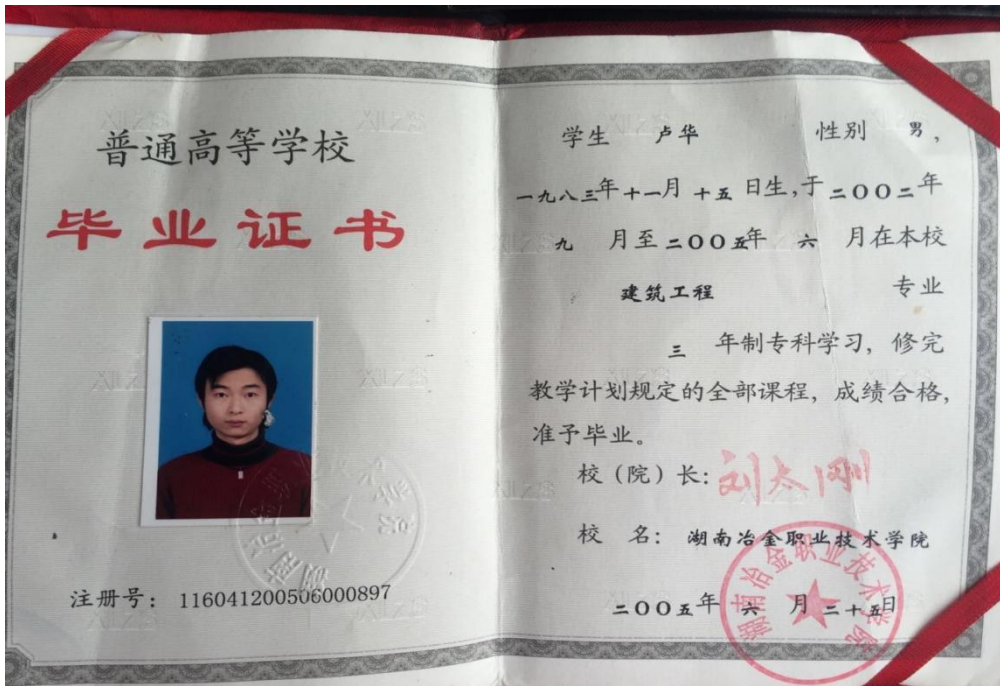 普通高等学校
毕业证书
注册号：116041200506000897
学生 卢华 性别 男，
一九八三年十一月十五日生，于二〇〇二年
九 月至二〇〇五年 六 月在本校
建筑工程 专业
三 年制专科学习，修完
教学计划规定的全部课程，成绩合格，
准予毕业。
校（院）长：刘太刚
校 名：湖南冶金职业技术学院
二〇〇五年 六 月二十五日
湖南冶金职业技术学院